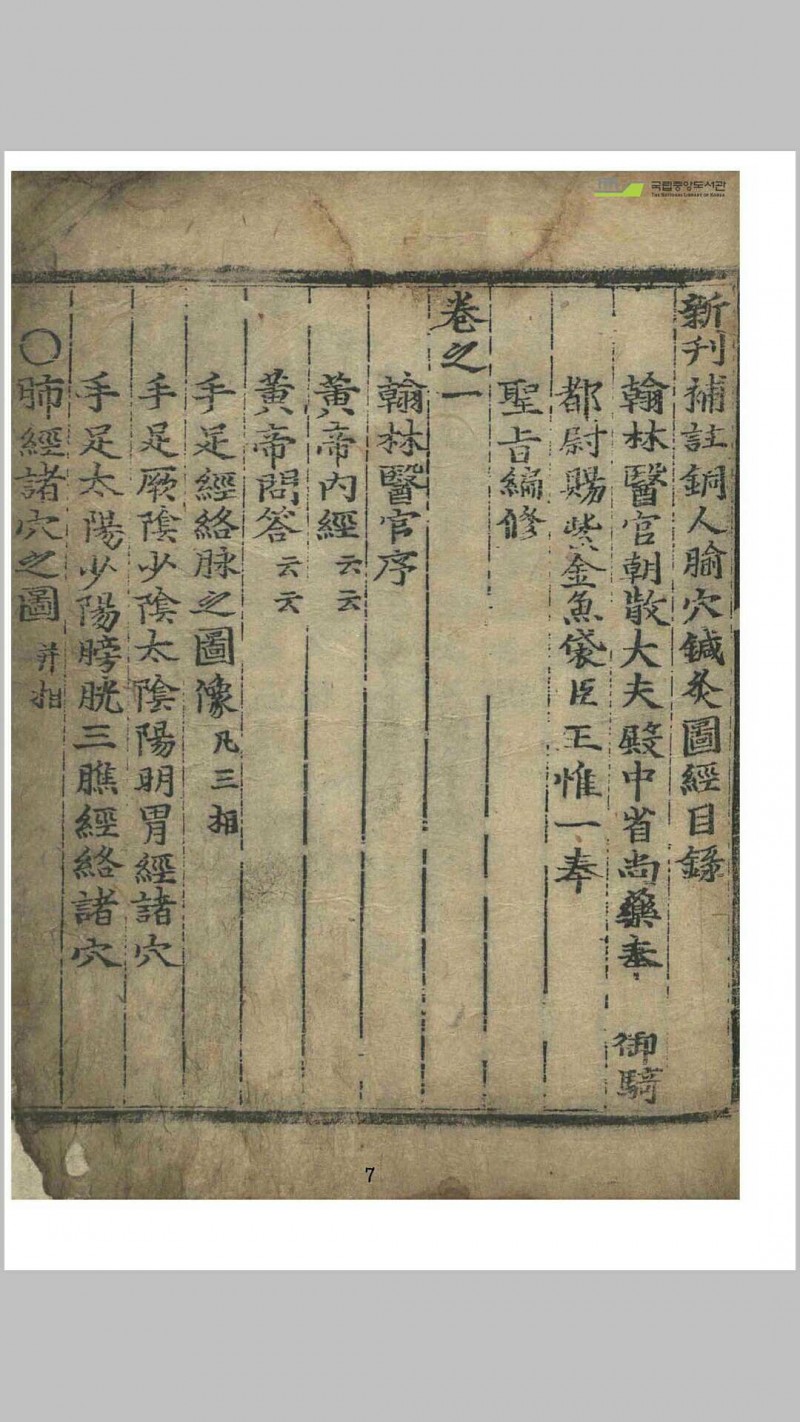 국립중앙도서관
THE NATIONAL LIBRARY OF KOREA
新刊補註銅人腧穴鍼灸圖經目錄
翰林醫官朝散大夫殿中省尚藥奉 御騎
都尉賜紫金魚袋臣王惟一奉
聖旨編修
卷之一
翰林醫官序
黃帝內經云云
黃帝問答云云
手足經絡脉之圖像凡三相
手足厥陰少陰太陰陽明胃經諸穴
手足太陽少陽膀胱三膲經絡諸穴
〇肺經諸穴之圖并相
7